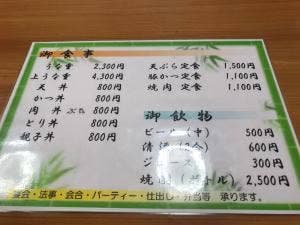 御食事
うな重 2,300円
上うな重 4,300円
天丼 800円
かつ丼 800円
肉丼 ぶた 800円
とり丼 800円
親子丼 800円
天ぷら定食 1,500円
豚かつ定食 1,100円
焼肉定食 1,100円
御飲物
ビール(中) 500円
清酒(2合) 600円
ジュース 300円
焼酎(ボトル) 2,500円
宴会・法事・会合・パーティー・仕出し・弁当等 承ります。